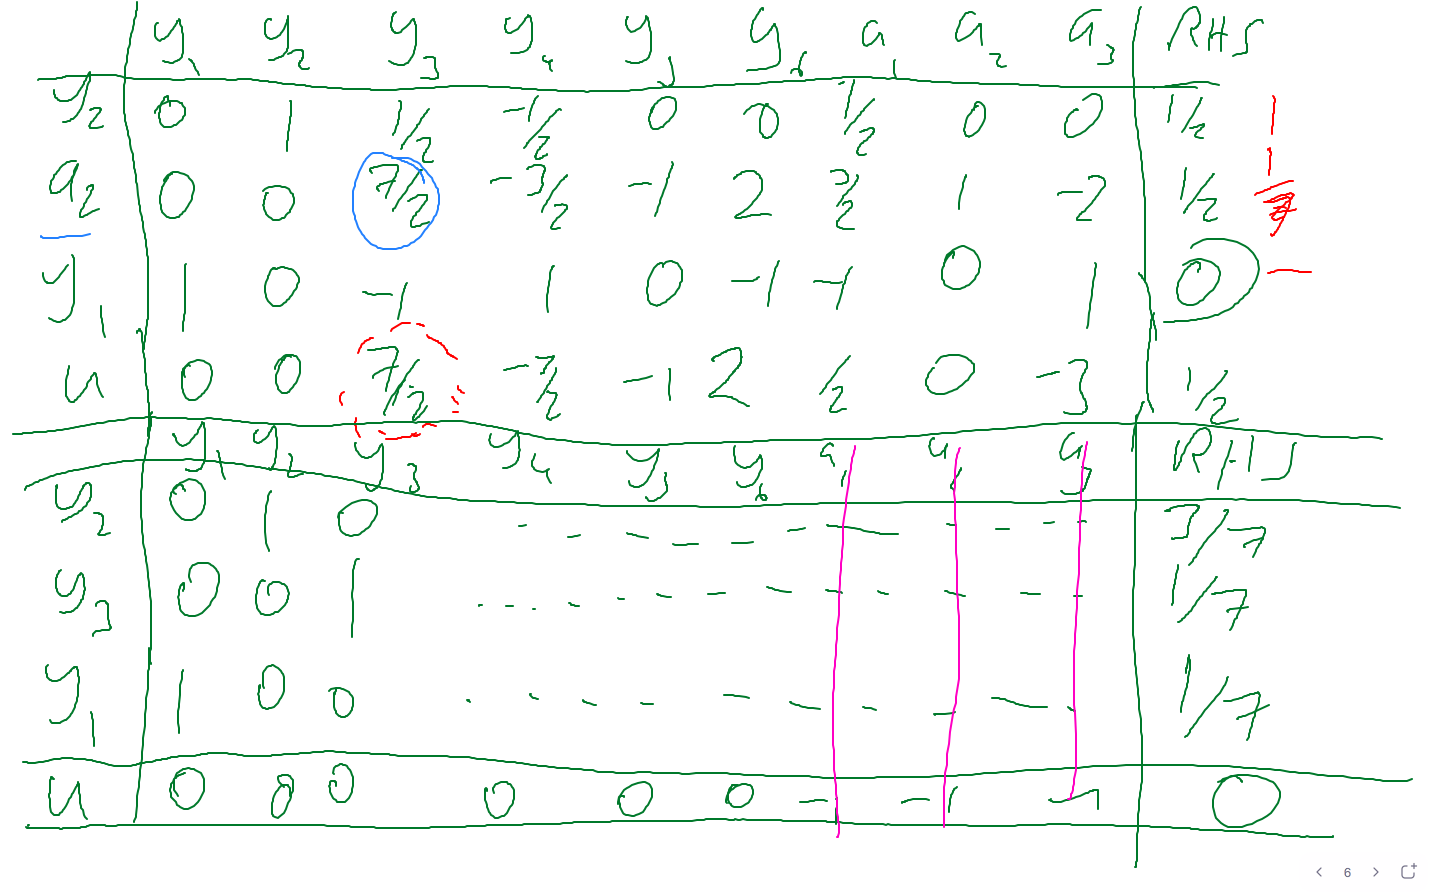 y1 y2 y3 y4 y5 y6 a1 a2 a3 RHS
y2 0 1 1/2 -1/2 0 0 1/2 0 0 1/2 1
a2 0 0 7/2 -3/2 -1 2 3/2 1 -2 1/2 1
y1 1 0 -1 1 0 -1 -1 0 1 0 —
u 0 0 7/2 -3/2 -1 2 1/2 0 -3 1/2
y1 y2 y3 y4 y5 y6 a1 a2 a3 RHS
y2 0 1 0 - - - - - - - - - 3/7
y3 0 0 1 - - - - - - - - - 1/7
y1 1 0 0 - - - - - - - - - 1/7
u 0 0 0 0 0 0 -1 -1 -1 0
6